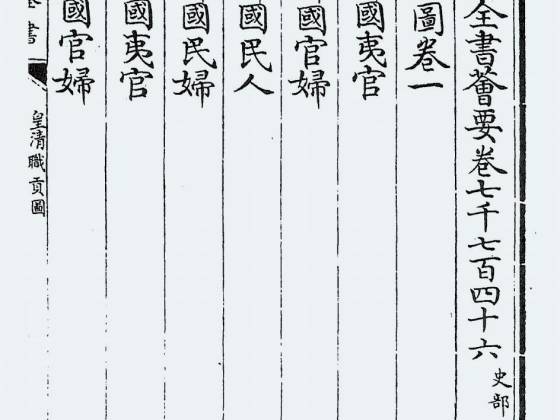 全書薈要卷七千七百四十六 史部
圖卷一
國夷官
國官婦
國民人
國民婦
國夷官
國官婦
書 皇清職貢圖